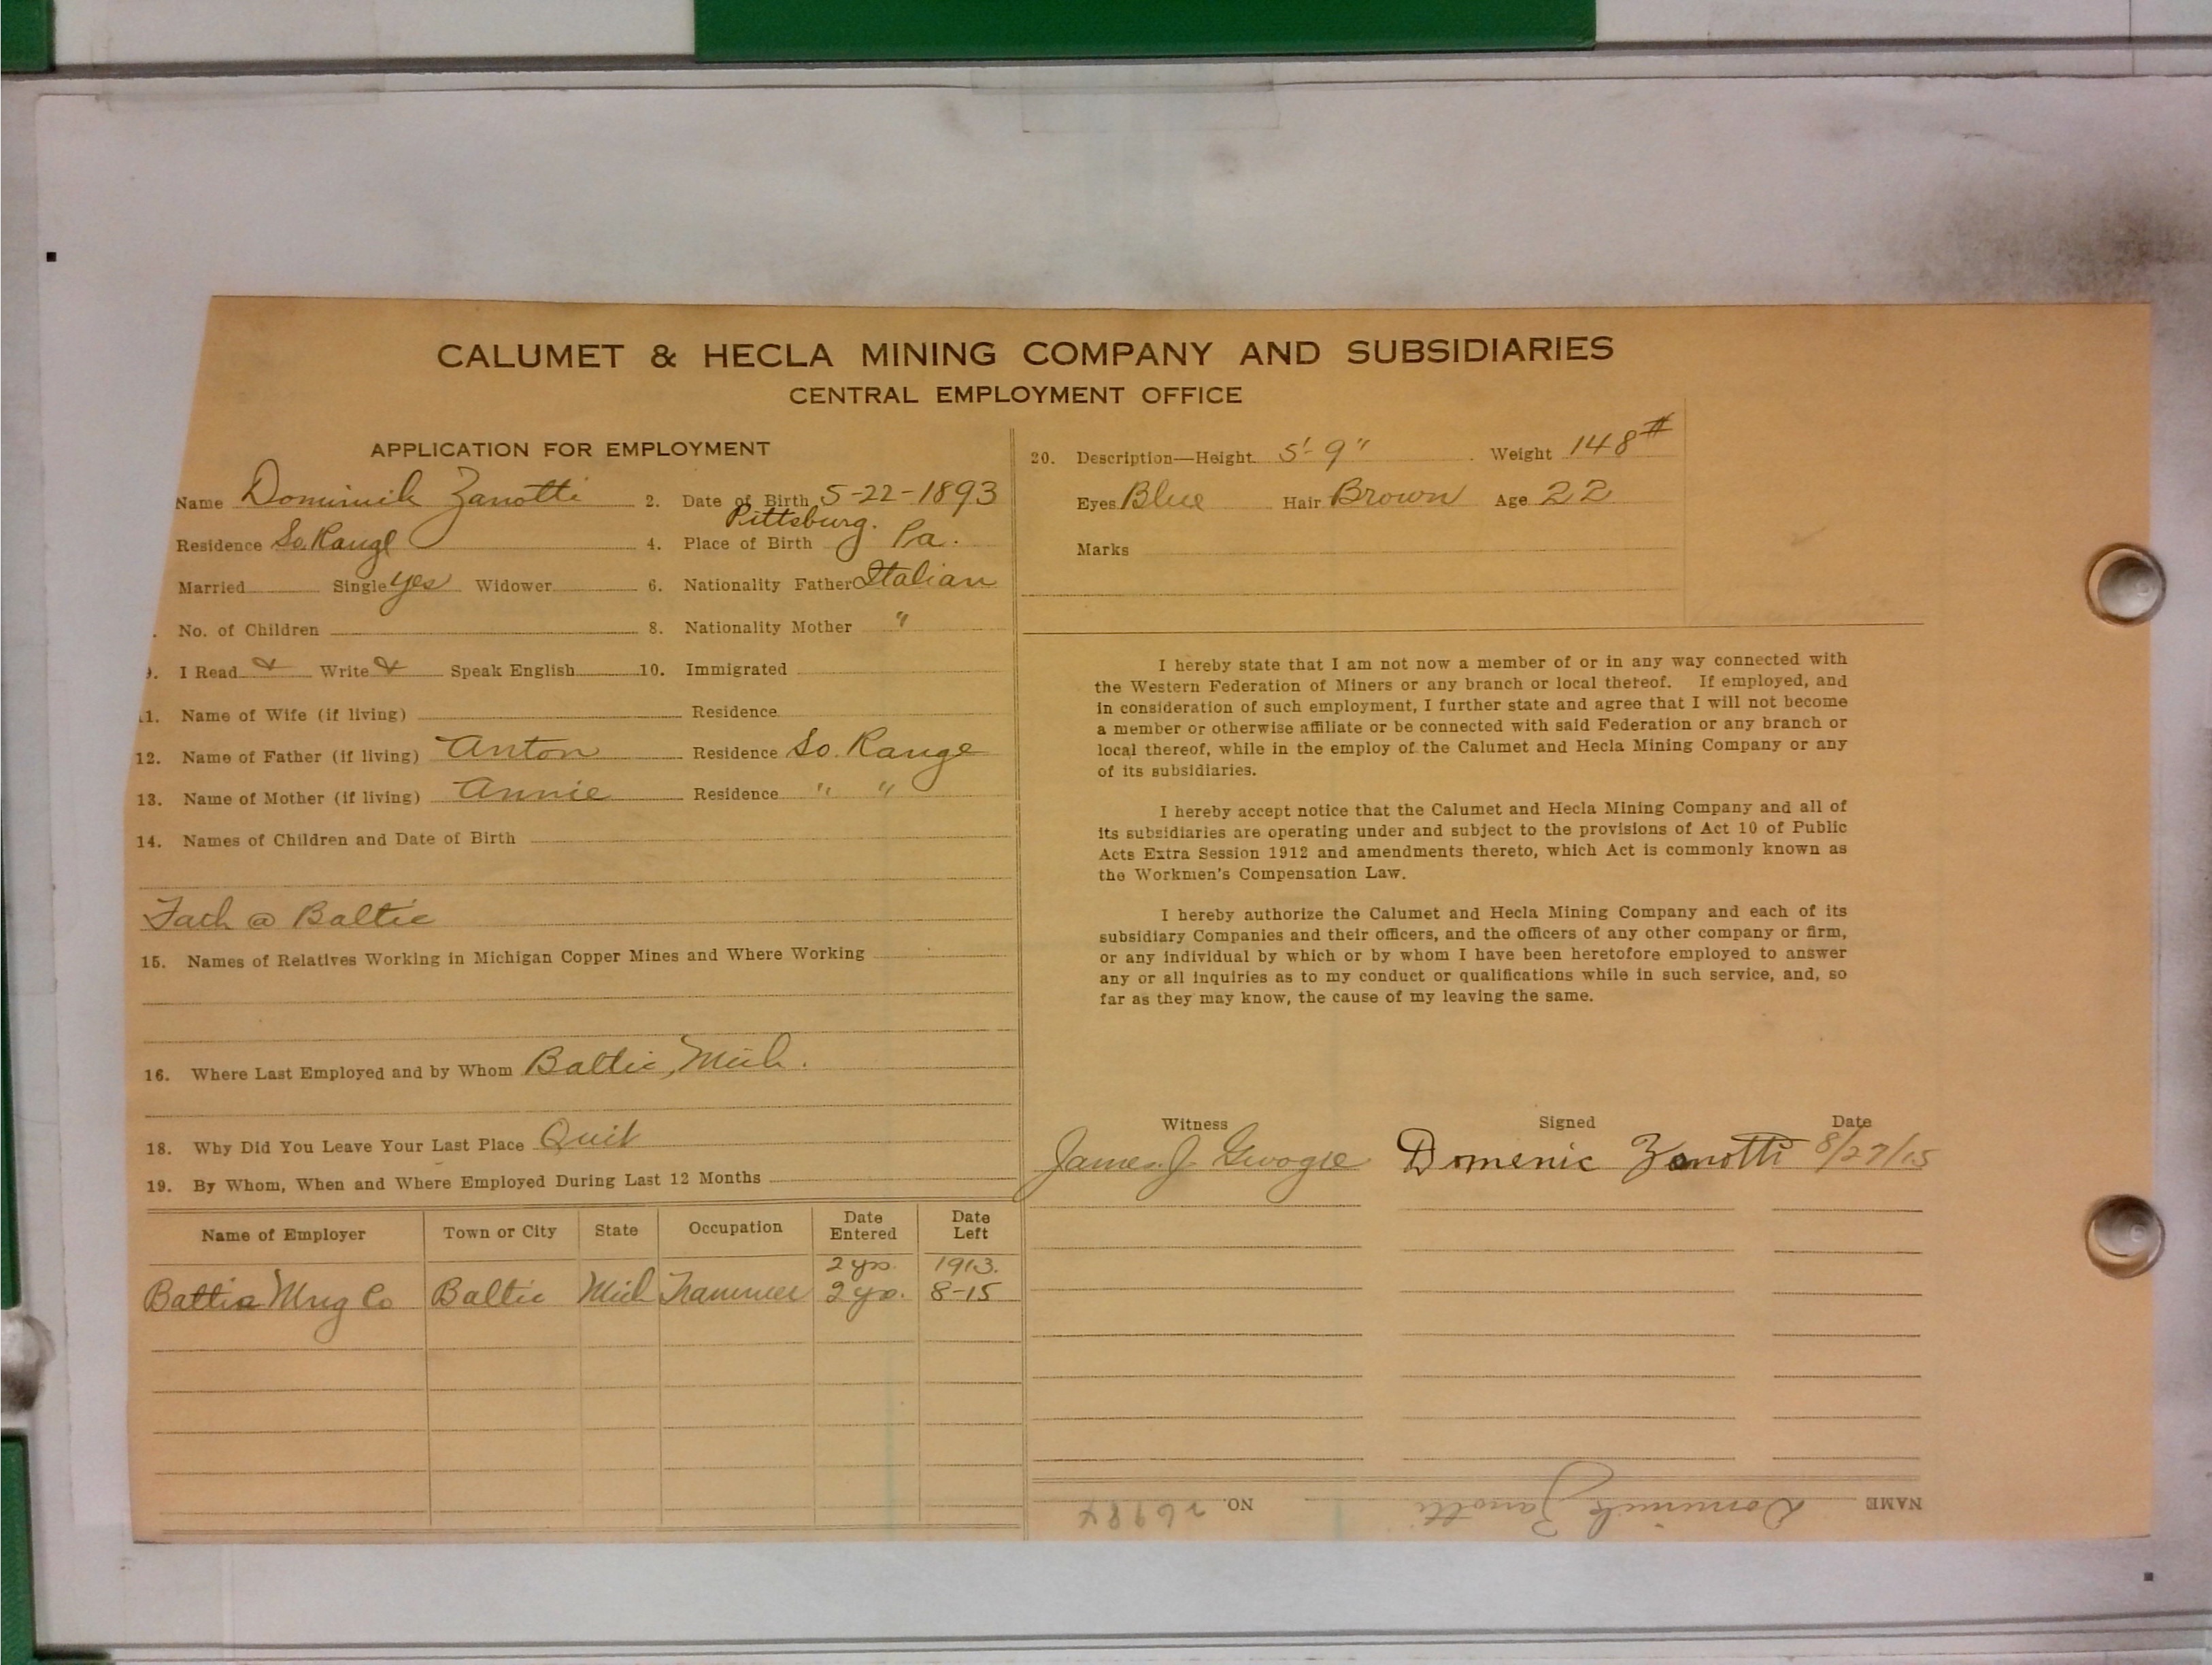 CALUMET & HECLA MINING COMPANY AND SUBSIDIARIES
CENTRAL EMPLOYMENT OFFICE
APPLICATION FOR EMPLOYMENT
Name Dominick Zanotti 2. Date of Birth 5-22-1893
Residence So. Range 4. Place of Birth Pittsburg. Pa.
Married Single yes Widower 6. Nationality Father Italian
No. of Children 8. Nationality Mother "
9. I Read & Write & Speak English 10. Immigrated
11. Name of Wife (if living) Residence
12. Name of Father (if living) Anton Residence So. Range
13. Name of Mother (if living) Annie Residence " "
14. Names of Children and Date of Birth
Fath @ Baltic
15. Names of Relatives Working in Michigan Copper Mines and Where Working
16. Where Last Employed and by Whom Baltic, Mich.
18. Why Did You Leave Your Last Place Quit
19. By Whom, When and Where Employed During Last 12 Months
Name of Employer Town or City State Occupation Date Entered Date Left
2 yrs. 1913.
Baltic Mng Co Baltic Mich Trammer 2 yrs. 8-15
20. Description—Height 5'-9" Weight 148#
Eyes Blue Hair Brown Age 22
Marks
I hereby state that I am not now a member of or in any way connected with
the Western Federation of Miners or any branch or local thereof. If employed, and
in consideration of such employment, I further state and agree that I will not become
a member or otherwise affiliate or be connected with said Federation or any branch or
local thereof, while in the employ of the Calumet and Hecla Mining Company or any
of its subsidiaries.
I hereby accept notice that the Calumet and Hecla Mining Company and all of
its subsidiaries are operating under and subject to the provisions of Act 10 of Public
Acts Extra Session 1912 and amendments thereto, which Act is commonly known as
the Workmen's Compensation Law.
I hereby authorize the Calumet and Hecla Mining Company and each of its
subsidiary Companies and their officers, and the officers of any other company or firm,
or any individual by which or by whom I have been heretofore employed to answer
any or all inquiries as to my conduct or qualifications while in such service, and, so
far as they may know, the cause of my leaving the same.
Witness Signed Date
James J. Domenic Zanotti 8/27/15
NAME Dominick Zanotti NO. 26984